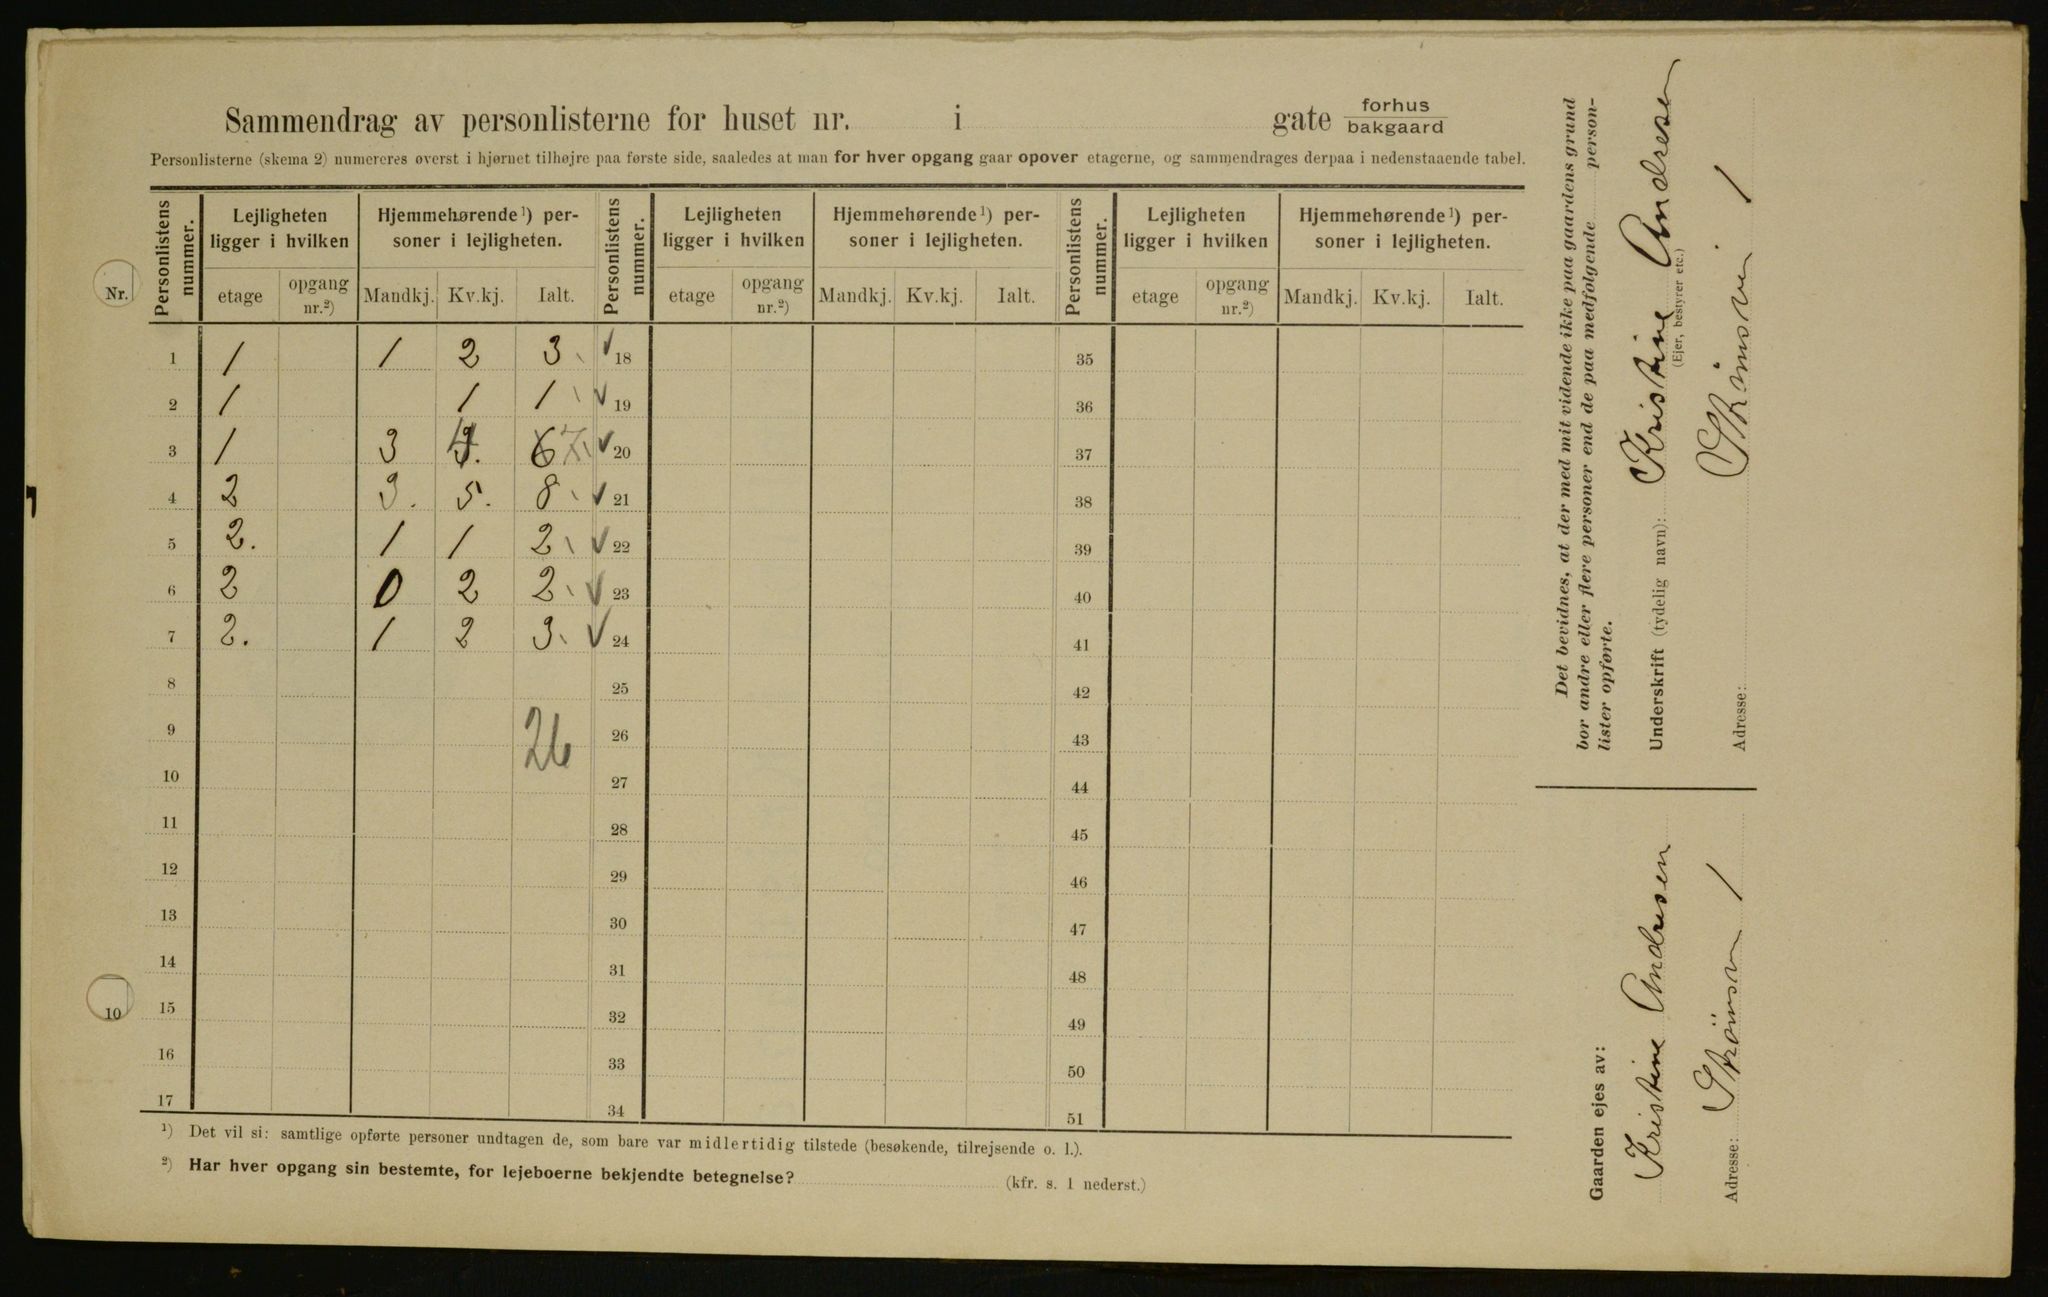 Sammendrag av personlisterne for huset nr. i gate forhus bakgaard
Personlisterne (skema 2) numereres øverst i hjørnet tilhøjre paa første side, saaledes at man for hver opgang gaar opover etagerne, og sammendrages derpaa i nedenstaaende tabel.
Nr.
Personlistens nummer. Lejligheten ligger i hvilken Hjemmehørende¹) personer i lejligheten. Personlistens nummer. Lejligheten ligger i hvilken Hjemmehørende¹) personer i lejligheten. Personlistens nummer. Lejligheten ligger i hvilken Hjemmehørende¹) personer i lejligheten.
etage opgang nr.²) Mandkj. Kv.kj. Ialt. etage opgang nr.²) Mandkj. Kv.kj. Ialt. etage opgang nr.²) Mandkj. Kv.kj. Ialt.
1 1 1 2 3 ✓ 18 35
2 1 1 1 ✓ 19 36
3 1 3 4 6 7 ✓ 20 37
4 2 3. 5. 8 ✓ 21 38
5 2. 1 1 2 ✓ 22 39
6 2 0 2 2 ✓ 23 40
7 2. 1 2 3. ✓ 24 41
8 25 42
9 26 26 43
10 27 44
11 28 45
12 29 46
13 30 47
14 31 48
10 15 32 49
16 33 50
17 34 51
¹) Det vil si: samtlige opførte personer undtagen de, som bare var midlertidig tilstede (besøkende, tilrejsende o. l.).
²) Har hver opgang sin bestemte, for lejeboerne bekjendte betegnelse? (kfr. s. 1 nederst.)
Det bevidnes, at der med mit vidende ikke paa gaardens grund
bor andre eller flere personer end de paa medfølgende person-
lister opførte.
Underskrift (tydelig navn): Kristine Andresen
(Ejer, bestyrer etc.)
Adresse: 1
Gaarden ejes av:
Kristine Andresen
Adresse: 1